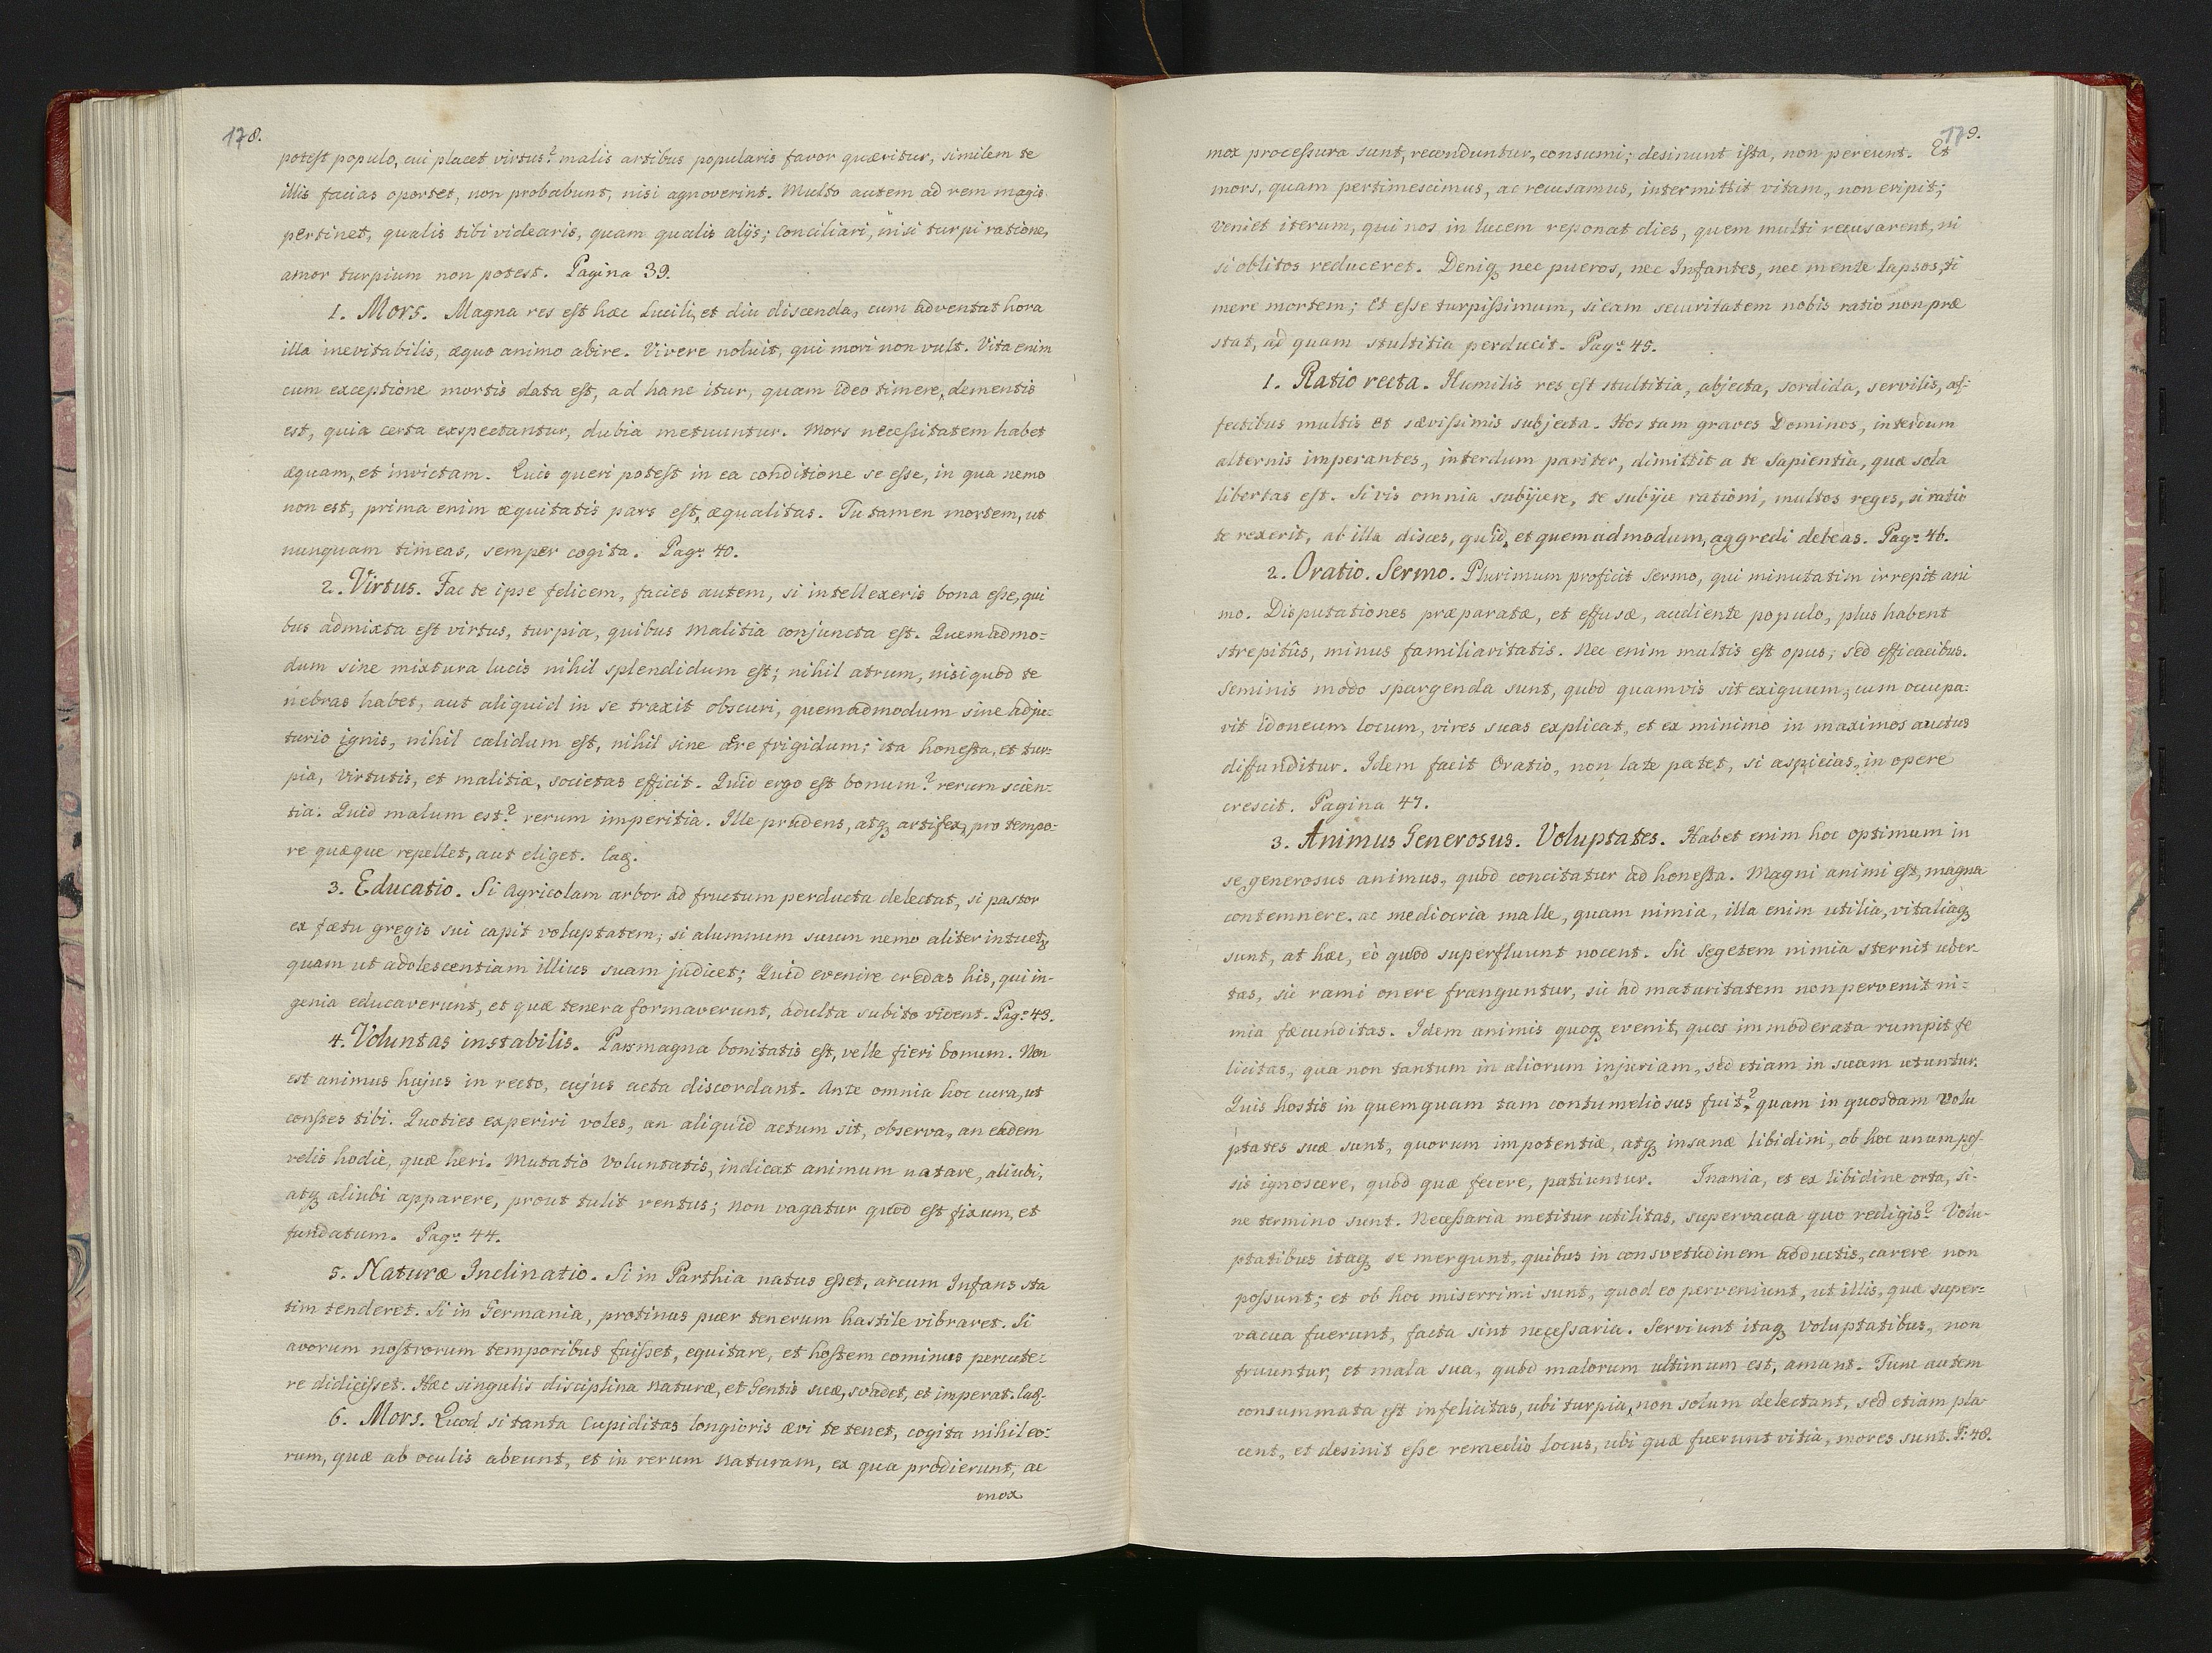 178.
potest populo, cui placet virtus? malis artibus popularis favor quæritur, similem te
illis facias oportet, non probabunt, nisi agnoverint. Multo autem ad rem magis
pertinet, qualis tibi videaris, quam qualis alijs; Conciliari, nisi turpi ratione,
amor turpium non potest. Pagina 39.
1. Mors. Magna res est hæc Lucili, et diu discenda, cum adventat hora
illa inevitabilis, æquo animo abire. Vivere noluit, qui mori non vult. Vita enim
cum exceptione mortis data est, ad hanc itur, quam ideo timere, dementis
est, quia certa exspectantur, dubia metuuntur. Mors necessitatem habet
æquam, et invictam. Quis queri potest in ea conditione se esse, in qua nemo
non est, prima enim æquitatis pars est, æqualitas. Tu tamen mortem, ut
nunquam timeas, semper cogita. Pagᵃ 40.
2. Virtus. Fac te ipse felicem, facies autem, si intellexeris bona esse, qui
bus admixta est virtus, turpia, quibus Malitia conjuncta est. Quemadmo=
dum sine mixtura lucis nihil splendidum est; nihil atrum, nisi quod te
nebras habet, aut aliquid in se traxit obscuri, quemadmodum sine adju=
torio ignis, nihil calidum est, nihil sine ære frigidum; ita honesta, et tur=
pia, Virtutis, et malitiæ, societas efficit. Quid ergo est bonum? rerum scien=
tia. Quid malum est? rerum imperitia. Ille prudens, atq₃ artifex, pro tempo=
re quæque repellet, aut eliget. Eaq.
3. Educatio. Si Agricolam arbor ad fructum perducta delectat, si pastor
ex fætu gregis sui capit voluptatem; si alumnum suum nemo aliter intuetr
quam ut adolescentiam illius suam judicet; Quid evenire credas his, qui in-
genia educaverunt, et quæ tenera formaverunt, adulta subito vident. Pagᵃ 43.
4. Voluntas instabilis. Pars magna bonitatis est, velle fieri bonum. Non
est animus hujus in recto, cujus acta discordant. Ante omnia hoc cura, ut
constes tibi. Quoties experiri voles, an aliquid actum sit, observa, an eadem
velis hodie, quæ heri. Mutatio Voluntatis, indicat animum natare, aliubi,
atq₃ aliubi apparere, prout tulit ventus; non vagatur quod est fixum, et
fundatum. Pagᵃ 44.
5. Naturæ Inclinatio. Si in Parthia natus esset, arcum Infans sta
tim tenderet. Si in Germania, protinus puer tenerum hastile vibraret. Si
avorum nostrorum temporibus fuisset, equitare, et hostem cominus percute=
re didicisset. Hæc singulis disciplina Naturæ, et Gentis suæ, svadet, et imperat. Eaq.
6. Mors. Quod si tanta Cupiditas longioris ævi te tenet, cogita nihil eo=
rum, quæ ab oculis abeunt, et in rerum Naturam, ex qua prodierunt, ac
mox
179.
mox processura sunt, reconduntur, consumi; desinunt ista, non pereunt. Et
mors, quam pertimescimus, ac recusamus, intermittit vitam, non eripit;
Veniet iterum, qui nos in lucem reponat dies, quem multi recusarent, ni
si oblitos reduceret. Deniq₃ nec pueros, nec Infantes, nec mente lapsos, ti
mere mortem; Et esse turpissimum, si eam securitatem nobis ratio non præ
stat, ad quam stultitia perducit. Pagᵃ 45.
1. Ratio recta. Humilis res est stultitia, abjecta, sordida, servilis, af=
fectibus multis et sævissimis subjecta. Hos tam graves Dominos, interdum
alternis imperantes, interdum pariter, dimittit a te Sapientia, quæ sola
libertas est. Si vis omnia subijcere, te subijce rationi, multos reges, si ratio
te rexerit, ab illa disces, quid, et quemadmodum, aggredi debeas. Pagᵃ 46.
2. Oratio. Sermo. Plurimum proficit Sermo, qui minutatim irrepit ani
mo. Disputationes præparatæ, et effusæ, audiente populo, plus habent
strepitûs, minus familiaritatis. Nec enim multis est opus, sed efficacibus.
Seminis modo spargenda sunt, quod quamvis sit exiguum, cum occupa=
vit idoneum locum, vires suas explicat, et ex minimo in maximos auctus
diffunditur. Idem facit Oratio, non late patet, si aspicias, in opere
crescit. Pagina 47.
3. Animus Generosus. Voluptates. Habet enim hoc optimum in
se generosus animus, quod concitatur ad honesta. Magni animi est, magna
contemnere, ac mediocria malle, quam nimia, illa enim utilia, vitaliaq₃
sunt, at hæc, eò quod superfluunt nocent. Sic Segetem nimia sternit uber-
tas, sic rami onere franguntur, sic ad maturitatem non pervenit ni=
mia fæcunditas. Idem animis quoq₃ evenit, quos immoderata rumpit fe
licitas, qua non tantum in aliorum injuriam, sed etiam in suam utuntur.
Quis hostis in quemquam tam contumeliosus fuit? quam in quosdam Volu
ptates suæ sunt, quorum impotentiæ, atq₃ insanæ libidini, ob hoc unum pos-
sis ignoscere, quod quæ fecere, patiuntur. Inania, et ex libidine orta, si-
ne termino sunt. Necessaria metitur utilitas, supervacua quo redigis? Volu-
ptatibus itaq₃ se mergunt, quibus in consvetudinem adductis, carere non
possunt; et ob hoc miserrimi sunt, quod eo perveniunt, ut illis, quæ super=
vacua fuerunt, facta sint necessaria. Serviunt itaq₃ Voluptatibus, non
fruuntur, et mala sua, quod malorum ultimum est, amant. Tunc autem
consummata est infelicitas, ubi turpia, non solum delectant, sed etiam pla-
cent, et desinit esse remedio locus, ubi quæ fuerunt vitia, mores sunt. P. 48.